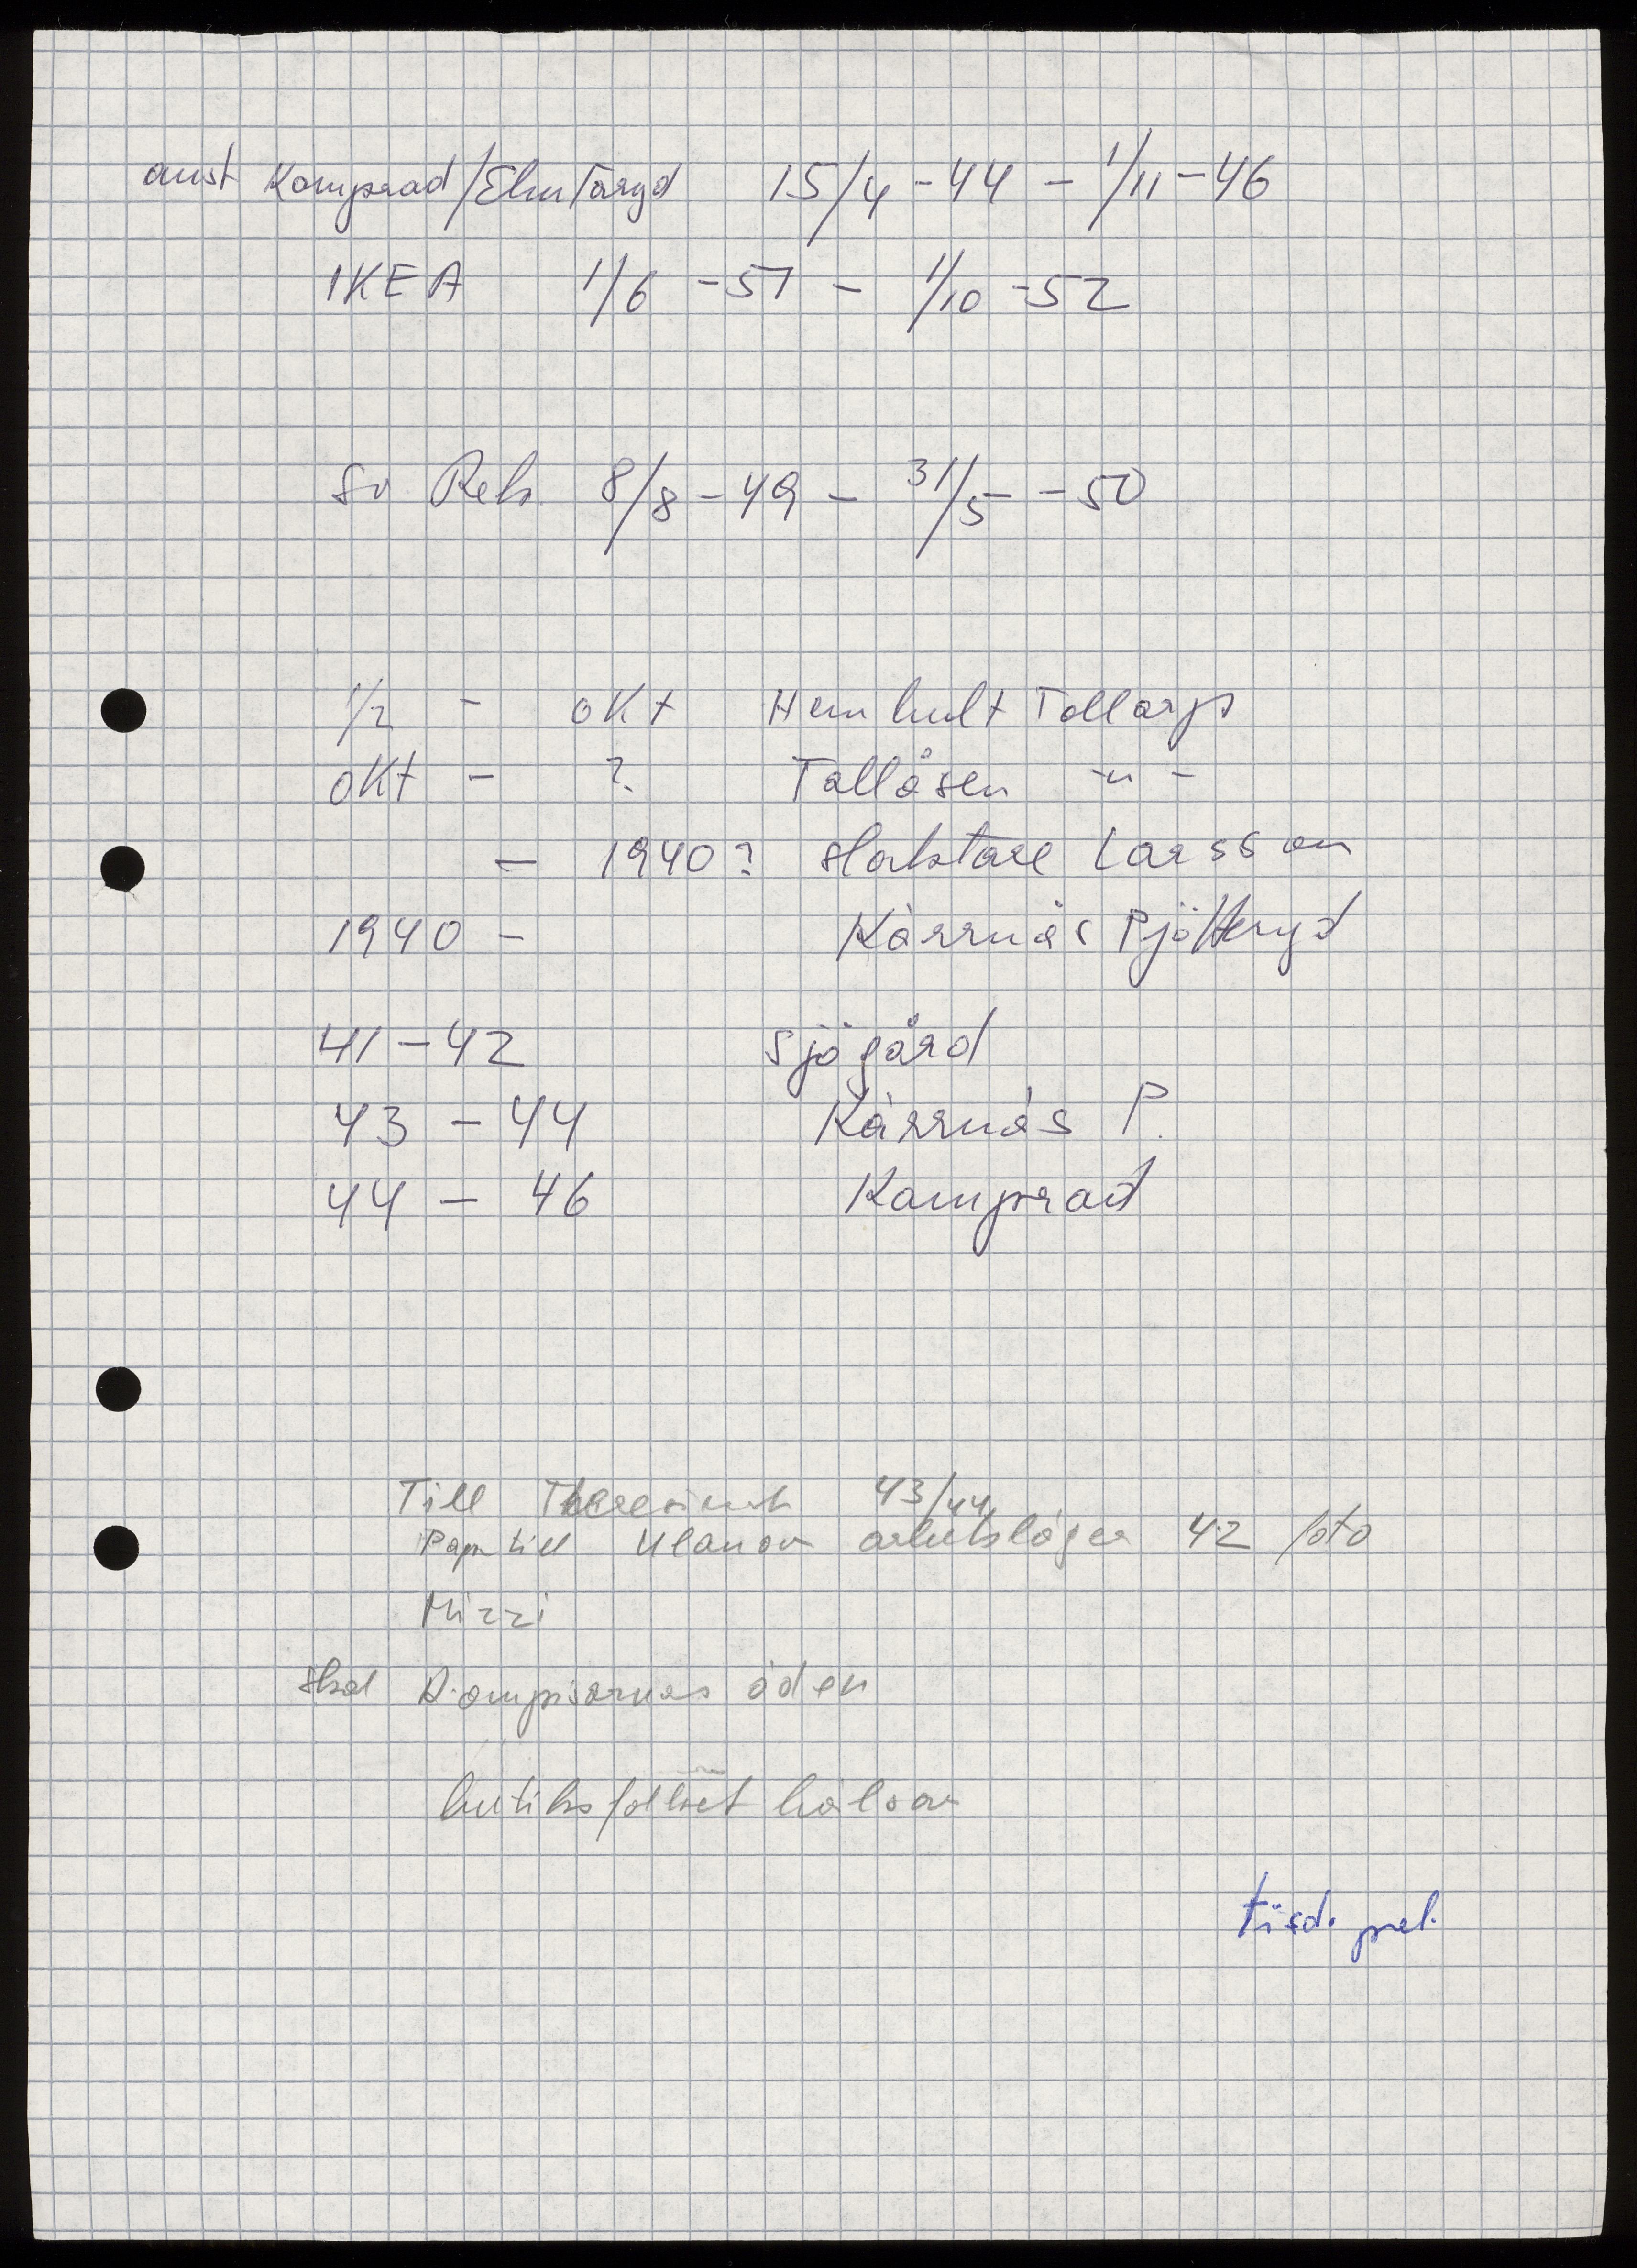 anst Kamprad/Elmtaryd 15/4 -44 - 1/11 -46
IKEA 1/6 -51 - 1/10 -52
Sv Rek 8/8 - 49 - 31/5 - -50
1/2 - okt Hemhult Tollarp
okt - ? Tallåsen -"-
- 1940? Hektare Larsson
1940 - Kärrnäs Pjätteryd
41 - 42 Sjögård
43 - 44 Kärrnäs P.
44 - 46 Kamprad
Till 43/44
Papa till arbetsläger 42 foto
Mizzi
Kompisarnas öden
butiksfolket hälsar
tisd. prel.